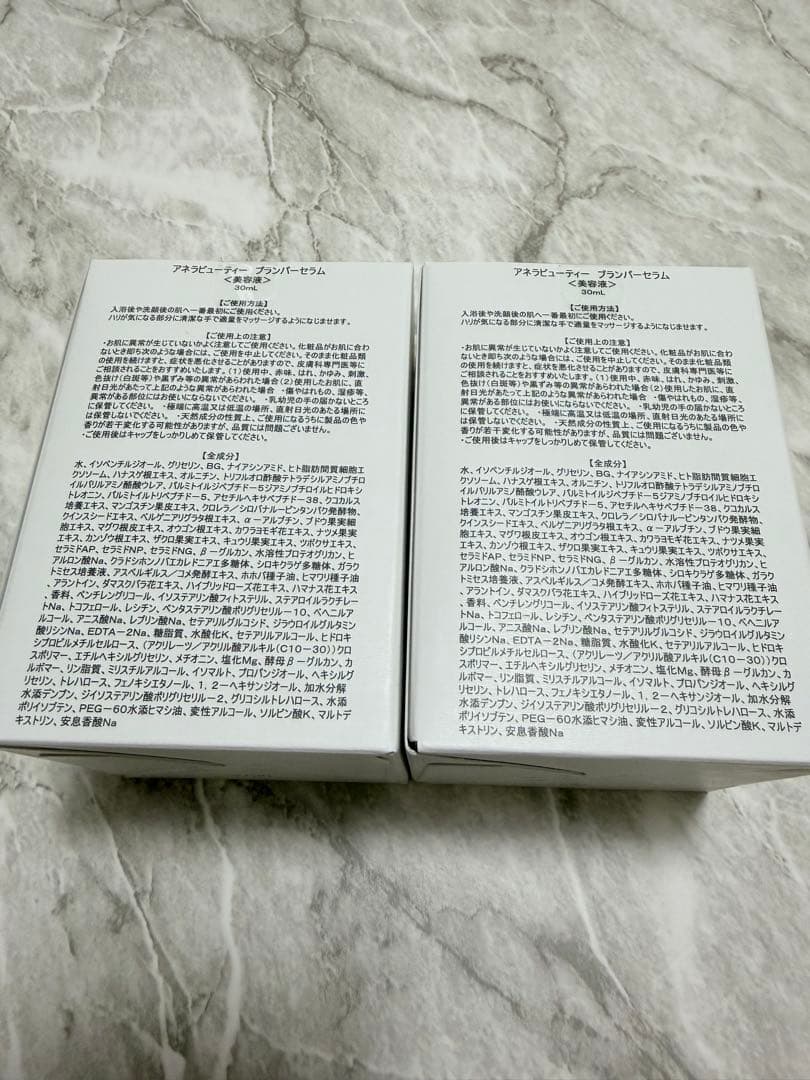 アネラビューティー プランパーセラム
＜美容液＞
30mL
【ご使用方法】
入浴後や洗顔後の肌へ一番最初にご使用ください。
ハリが気になる部分に清潔な手で適量をマッサージするようになじませます。
【ご使用上の注意】
・お肌に異常が生じていないかよく注意してご使用ください。化粧品がお肌に合わ
ないとき即ち次のような場合には、ご使用を中止してください。そのまま化粧品類
の使用を続けますと、症状を悪化させることがありますので、皮膚科専門医等に
ご相談されることをおすすめいたします。（1）使用中、赤味、はれ、かゆみ、刺激、
色抜け（白斑等）や黒ずみ等の異常があらわれた場合（2）使用したお肌に、直
射日光があたって上記のような異常があらわれた場合 ・傷やはれもの、湿疹等、
異常がある部位にはお使いにならないでください。 ・乳幼児の手の届かないところ
に保管してください。 ・極端に高温又は低温の場所、直射日光のあたる場所に
は保管しないでください。 ・天然成分の性質上、ご使用になるうちに製品の色や
香りが若干変化する可能性がありますが、品質には問題ございません。
・ご使用後はキャップをしっかりしめて保管してください。
【全成分】
水、イソペンチルジオール、グリセリン、BG、ナイアシンアミド、ヒト脂肪間質細胞エ
クソソーム、ハナスゲ根エキス、オルニチン、トリフルオロ酢酸テトラデシルアミノブチロ
イルバリルアミノ酪酸ウレア、パルミトイルジペプチド－5ジアミノブチロイルヒドロキシ
トレオニン、パルミトイルトリペプチド－5、アセチルヘキサペプチド－38、クコカルス
培養エキス、マンゴスチン果皮エキス、クロレラ／シロバナルーピンタンパク発酵物、
クインスシードエキス、ベルゲニアリグラタ根エキス、α－アルブチン、ブドウ果実細
胞エキス、マグワ根皮エキス、オウゴン根エキス、カワラヨモギ花エキス、ナツメ果実
エキス、カンゾウ根エキス、ザクロ果実エキス、キュウリ果実エキス、ツボクサエキス、
セラミドAP、セラミドNP、セラミドNG、β－グルカン、水溶性プロテオグリカン、ヒ
アルロン酸Na、クラドシホンノバエカレドニアエ多糖体、シロキクラゲ多糖体、ガラク
トミセス培養液、アスペルギルス／コメ発酵エキス、ホホバ種子油、ヒマワリ種子油
、アラントイン、ダマスクバラ花エキス、ハイブリッドローズ花エキス、ハマナス花エキス
、香料、ペンチレングリコール、イソステアリン酸フィトステリル、ステアロイルラクチレー
トNa、トコフェロール、レシチン、ペンタステアリン酸ポリグリセリル－10、ベヘニルア
ルコール、アニス酸Na、レブリン酸Na、セテアリルグルコシド、ジラウロイルグルタミン
酸リシンNa、EDTA－2Na、糖脂質、水酸化K、セテアリルアルコール、ヒドロキ
シプロピルメチルセルロース、（アクリレーツ／アクリル酸アルキル（C10－30））クロ
スポリマー、エチルヘキシルグリセリン、メチオニン、塩化Mg、酵母β－グルカン、カ
ルボマー、リン脂質、ミリスチルアルコール、イソマルト、プロパンジオール、ヘキシルグ
リセリン、トレハロース、フェノキシエタノール、1，2－ヘキサンジオール、加水分解
水添デンプン、ジイソステアリン酸ポリグリセリル－2、グリコシルトレハロース、水添
ポリイソブテン、PEG－60水添ヒマシ油、変性アルコール、ソルビン酸K、マルトデ
キストリン、安息香酸Na
アネラビューティー プランパーセラム
＜美容液＞
30mL
【ご使用方法】
入浴後や洗顔後の肌へ一番最初にご使用ください。
ハリが気になる部分に清潔な手で適量をマッサージするようになじませます。
【ご使用上の注意】
・お肌に異常が生じていないかよく注意してご使用ください。化粧品がお肌に合わ
ないとき即ち次のような場合には、ご使用を中止してください。そのまま化粧品類
の使用を続けますと、症状を悪化させることがありますので、皮膚科専門医等に
ご相談されることをおすすめいたします。（1）使用中、赤味、はれ、かゆみ、刺激、
色抜け（白斑等）や黒ずみ等の異常があらわれた場合（2）使用したお肌に、直
射日光があたって上記のような異常があらわれた場合 ・傷やはれもの、湿疹等、
異常がある部位にはお使いにならないでください。 ・乳幼児の手の届かないところ
に保管してください。 ・極端に高温又は低温の場所、直射日光のあたる場所に
は保管しないでください。 ・天然成分の性質上、ご使用になるうちに製品の色や
香りが若干変化する可能性がありますが、品質には問題ございません。
・ご使用後はキャップをしっかりしめて保管してください。
【全成分】
水、イソペンチルジオール、グリセリン、BG、ナイアシンアミド、ヒト脂肪間質細胞エ
クソソーム、ハナスゲ根エキス、オルニチン、トリフルオロ酢酸テトラデシルアミノブチロ
イルバリルアミノ酪酸ウレア、パルミトイルジペプチド－5ジアミノブチロイルヒドロキシ
トレオニン、パルミトイルトリペプチド－5、アセチルヘキサペプチド－38、クコカルス
培養エキス、マンゴスチン果皮エキス、クロレラ／シロバナルーピンタンパク発酵物、
クインスシードエキス、ベルゲニアリグラタ根エキス、α－アルブチン、ブドウ果実細
胞エキス、マグワ根皮エキス、オウゴン根エキス、カワラヨモギ花エキス、ナツメ果実
エキス、カンゾウ根エキス、ザクロ果実エキス、キュウリ果実エキス、ツボクサエキス、
セラミドAP、セラミドNP、セラミドNG、β－グルカン、水溶性プロテオグリカン、ヒ
アルロン酸Na、クラドシホンノバエカレドニアエ多糖体、シロキクラゲ多糖体、ガラク
トミセス培養液、アスペルギルス／コメ発酵エキス、ホホバ種子油、ヒマワリ種子油
、アラントイン、ダマスクバラ花エキス、ハイブリッドローズ花エキス、ハマナス花エキス
、香料、ペンチレングリコール、イソステアリン酸フィトステリル、ステアロイルラクチレー
トNa、トコフェロール、レシチン、ペンタステアリン酸ポリグリセリル－10、ベヘニルア
ルコール、アニス酸Na、レブリン酸Na、セテアリルグルコシド、ジラウロイルグルタミン
酸リシンNa、EDTA－2Na、糖脂質、水酸化K、セテアリルアルコール、ヒドロキ
シプロピルメチルセルロース、（アクリレーツ／アクリル酸アルキル（C10－30））クロ
スポリマー、エチルヘキシルグリセリン、メチオニン、塩化Mg、酵母β－グルカン、カ
ルボマー、リン脂質、ミリスチルアルコール、イソマルト、プロパンジオール、ヘキシルグ
リセリン、トレハロース、フェノキシエタノール、1，2－ヘキサンジオール、加水分解
水添デンプン、ジイソステアリン酸ポリグリセリル－2、グリコシルトレハロース、水添
ポリイソブテン、PEG－60水添ヒマシ油、変性アルコール、ソルビン酸K、マルトデ
キストリン、安息香酸Na